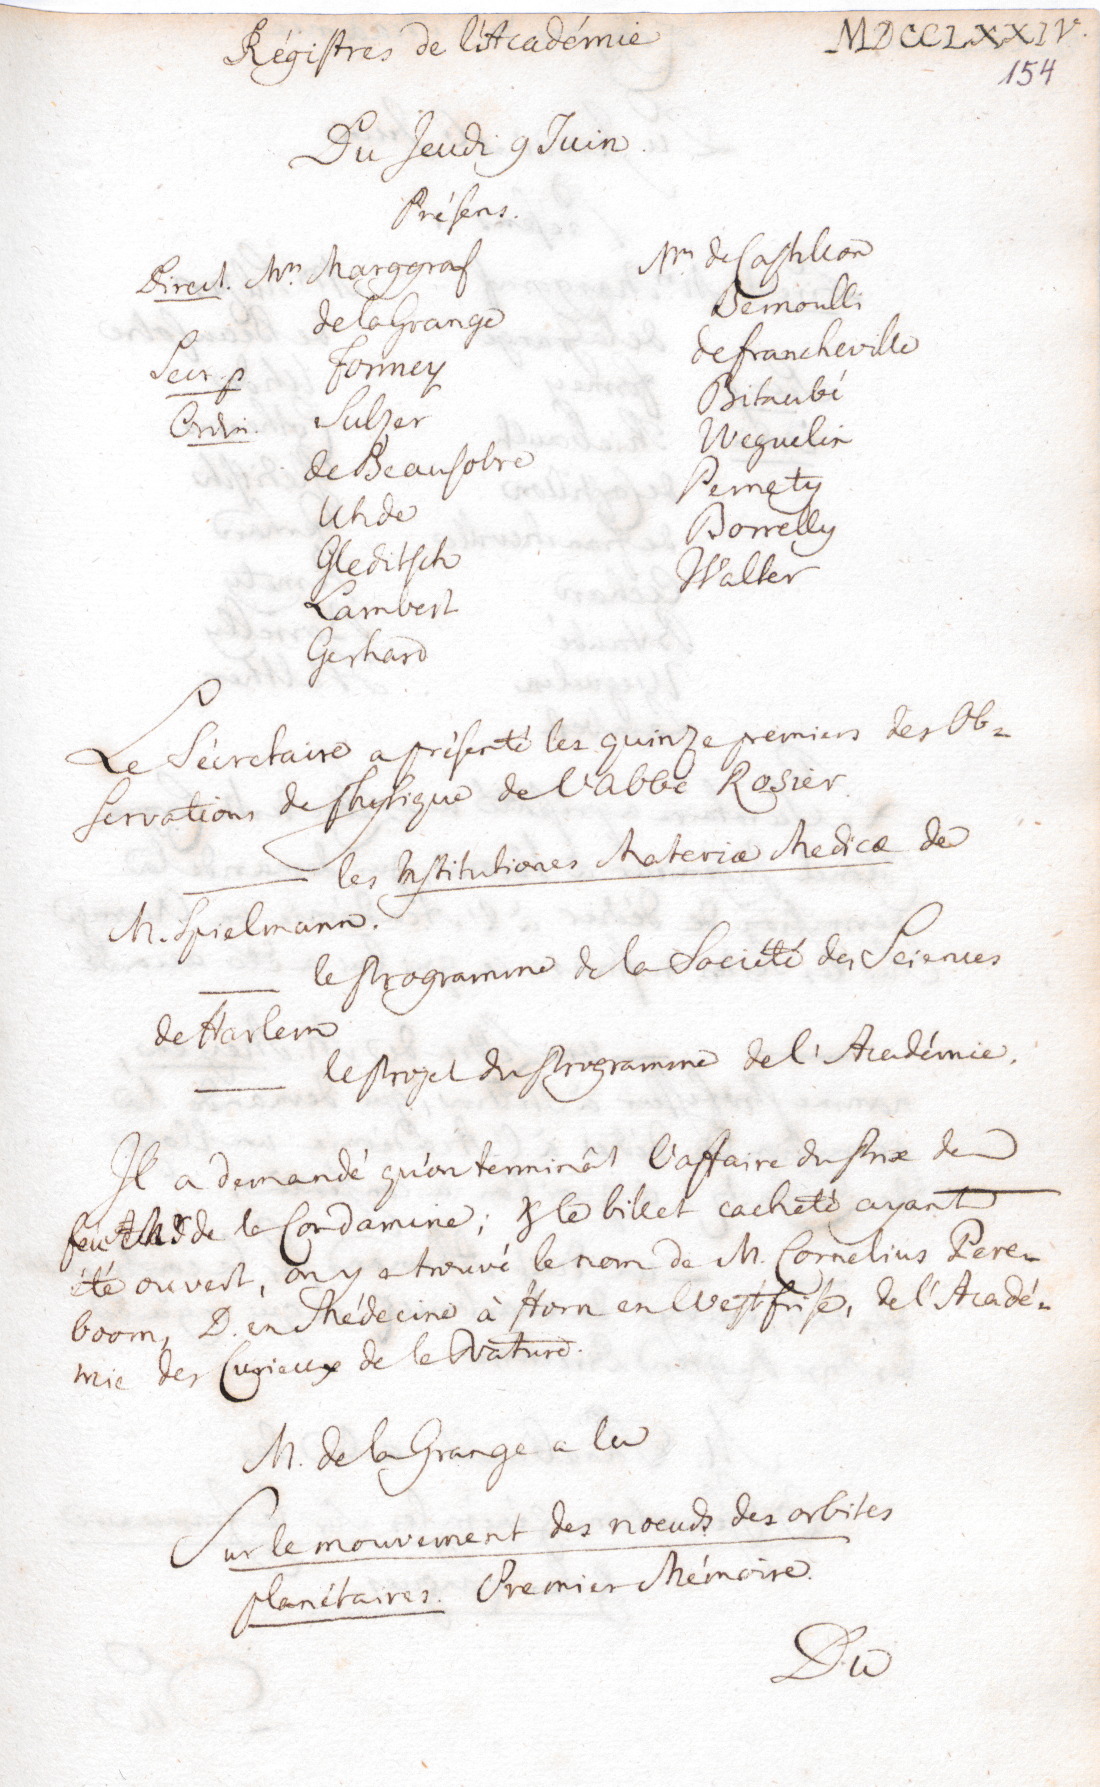 Régistres de l'Académie
MDCCLXXIV.
154
Du Jeudi 9 Juin.
Présens.
Direct. Mrs. Marggraf
de la Grange
Secr. p. Formey
Ordin. Sulzer
de Beausobre
Uhde
Gleditsch
Lambert
Gerhard
Mrs. de Castillon
Bernoulli
de Francheville
Bitaubé
Weguelin
Pernety
Borrelly
Walter
Le Sécretaire a présenté les quinze premiers des Ob-
servations de Physique de l'Abbé Rosier.
les Institutiones Materiæ Medicæ de
M. Spielmann.
le Programme de la Société des Sciences
de Harlem
le projet du Programme de l'Académie.
Il a demandé qu'on terminât l'affaire du Prix de
feu M. de la Condamine; & le billet cacheté ayant
été ouvert, on y a trouvé le nom de M. Cornelius Pere-
boom, D. en Médecine à Horn en Westfrise, de l'Acadé-
mie des Curieux de la Nature.
M. de la Grange a lu
Sur le mouvement des noeuds des orbites
planétaires. Premier Mémoire.
Du